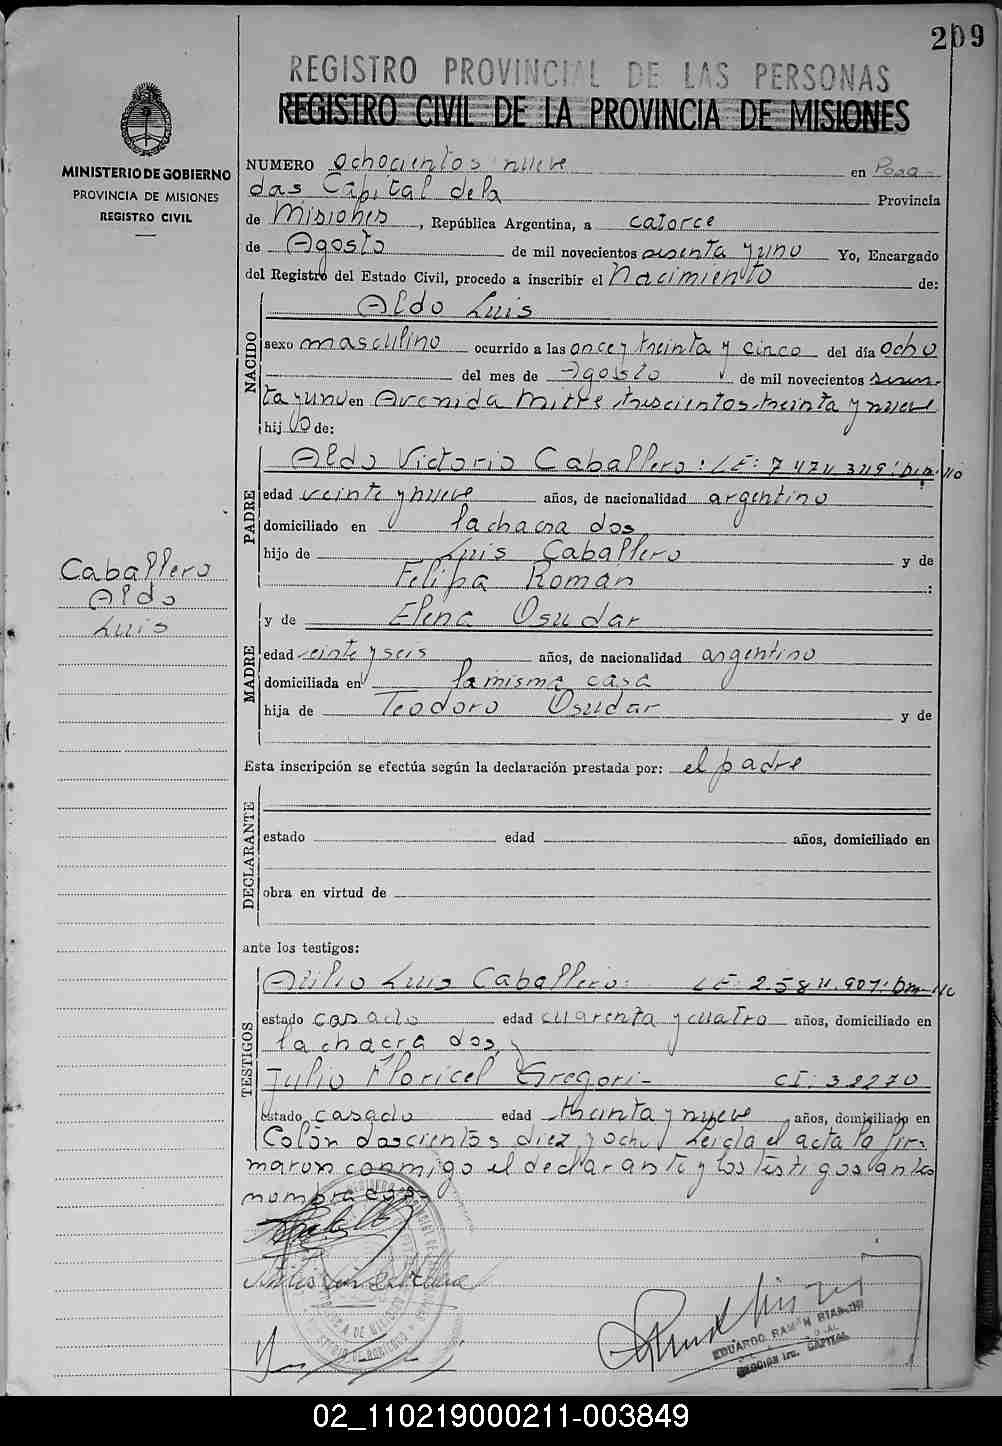 209
REGISTRO PROVINCIAL DE LAS PERSONAS
REGISTRO CIVIL DE LA PROVINCIA DE MISIONES
MINISTERIO DE GOBIERNO
PROVINCIA DE MISIONES
REGISTRO CIVIL
NUMERO ochocientos nueve en Posa-
das Capital dela Provincia
de Misiones, República Argentina, a catorce
de Agosto de mil novecientos sesenta y uno Yo, Encargado
del Registro del Estado Civil, procedo a inscribir el Nacimiento de:
NACIDO
Aldo Luis
sexo masculino ocurrido a las once y treinta y cinco del día ocho
del mes de Agosto de mil novecientos sesen-
ta y uno en Avenida Mitre trescientos treinta y nueve
hijo de:
PADRE
Aldo Victorio Caballero: LE: 7 474 349:
edad veinte y nueve años, de nacionalidad argentino
domiciliado en la chacra dos
hijo de Luis Caballero y de
Felipa Roman
Caballero
Aldo
Luis
MADRE
y de Elena Osudar
edad veinte y seis años, de nacionalidad argentino
domiciliada en la misma casa
hija de Teodoro Osudar y de
Esta inscripción se efectúa según la declaración prestada por: el padre
DECLARANTE
estado edad años, domiciliado en
obra en virtud de
ante los testigos:
TESTIGOS
Atilio Luis Caballero: LE: 2.584.907:
estado casado edad cuarenta y cuatro años, domiciliado en
la chacra dos,
Julio Floricel Gregori- CI: 32270
estado casado edad treinta y nueve años, domiciliado en
Colón doscientos diez y ocho Leida el acta la fir-
maron conmigo el declarante y los testigos antes
nombrados.
EDUARDO RAMON BIANCHI
SECCION 1ra. CAPITAL
02_110219000211-003849